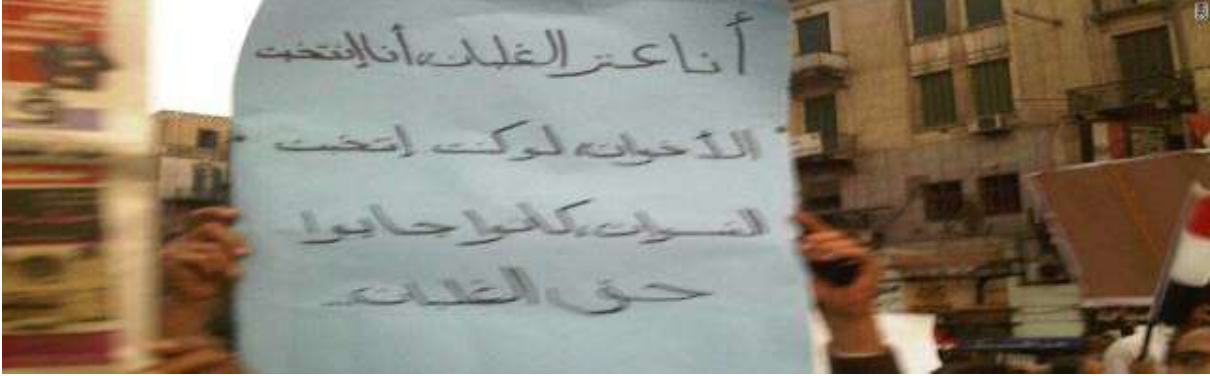 أنا عنتر الغلبان أنا إنتخبت
الأخوان لو كنت إنتخبت
النسوان كانوا جابوا
حق الغلبان